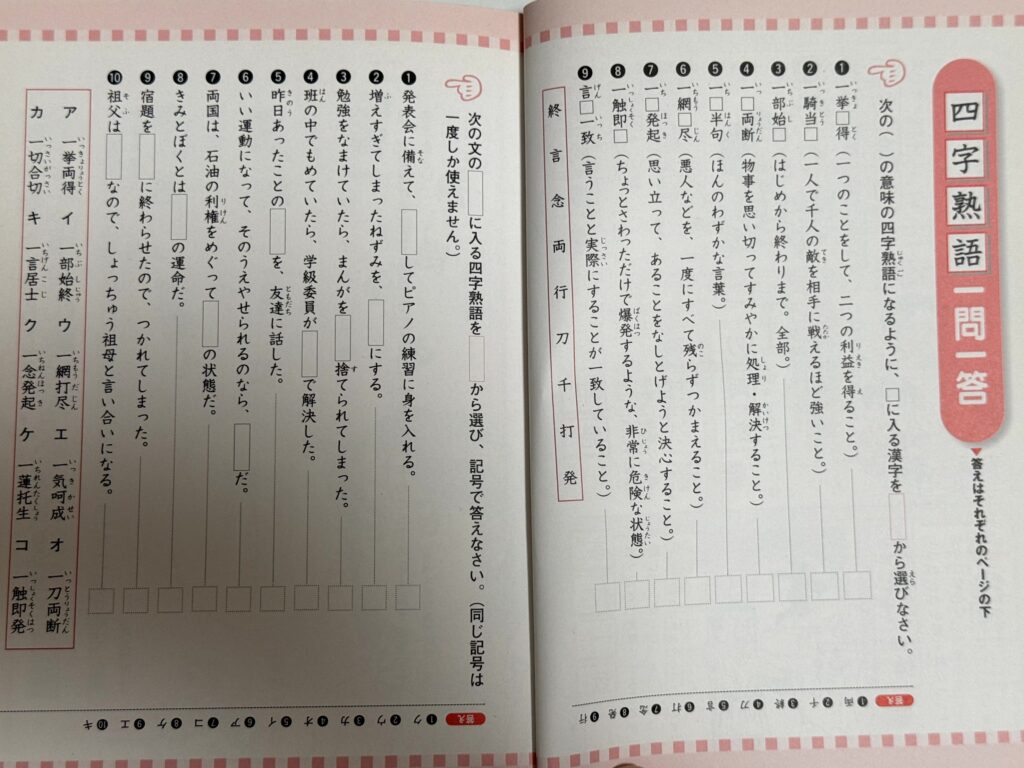 四字熟語一問一答
▼答えはそれぞれのページの下
次の（　）の意味の四字熟語になるように、□に入る漢字を□から選びなさい。
❶ 一挙□得（一つのことをして、二つの利益を得ること。）
❷ 一騎当□（一人で千人の敵を相手に戦えるほど強いこと。）
❸ 一部始□（はじめから終わりまで。全部。）
❹ 一□両断（物事を思い切ってすみやかに処理・解決すること。）
❺ 一□半句（ほんのわずかな言葉。）
❻ 一網□尽（悪人などを、一度にすべて残らずつかまえること。）
❼ 一□発起（思い立って、あることをなしとげようと決心すること。）
❽ 一触即□（ちょっとさわっただけで爆発するような、非常に危険な状態。）
❾ 言□一致（言うことと実際にすることが一致していること。）
終 言 念 両 行 刀 千 打 発
答え
❶両 ❷千 ❸終 ❹刀 ❺言 ❻打 ❼念 ❽発 ❾行
次の文の□に入る四字熟語を□から選び、記号で答えなさい。（同じ記号は
一度しか使えません。）
❶ 発表会に備えて、□してピアノの練習に身を入れる。
❷ 増えすぎてしまったねずみを、□にする。
❸ 勉強をなまけていたら、まんがを□捨てられてしまった。
❹ 班の中でもめていたら、学級委員が□で解決した。
❺ 昨日あったことの□を、友達に話した。
❻ いい運動になって、そのうえやせられるのなら、□だ。
❼ 両国は、石油の利権をめぐって□の状態だ。
❽ きみとぼくとは□の運命だ。
❾ 宿題を□に終わらせたので、つかれてしまった。
❿ 祖父は□なので、しょっちゅう祖母と言い合いになる。
ア 一挙両得 イ 一部始終 ウ 一網打尽 エ 一気呵成 オ 一刀両断
カ 一切合切 キ 一言居士 ク 一念発起 ケ 一蓮托生 コ 一触即発
答え
❶ク ❷ウ ❸カ ❹オ ❺イ ❻ア ❼コ ❽ケ ❾エ ❿キ